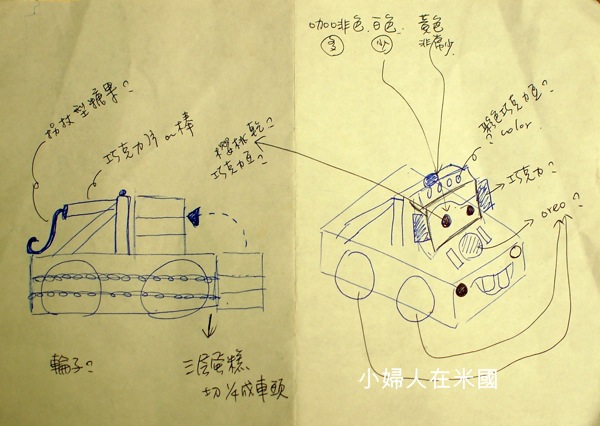 咖啡色 白色 黃色
多 少 非常少
拐杖型糖果?
巧克力片 or 棒
櫻桃乾?
巧克力豆?
彩色巧克力豆?
? color
巧克力?
oreo?
輪子?
三層蛋糕
切 1/4 成車頭
小婦人在米國